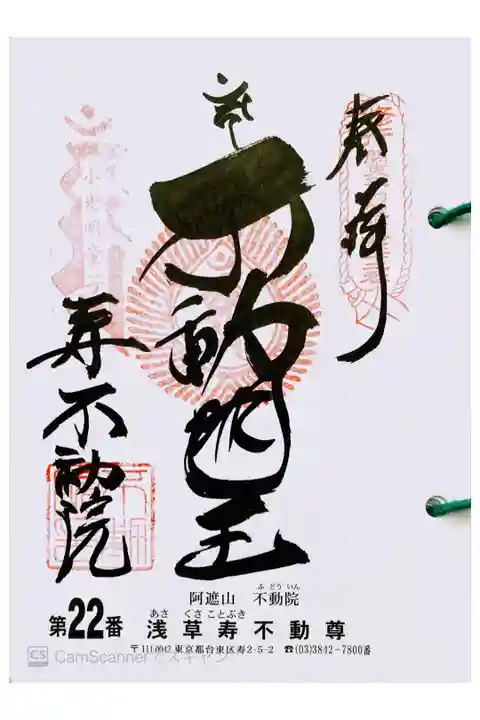 奉拝
不動明王
寿不動院
阿遮山 不動院
ふどういん
第22番 浅草寿不動尊
あさ くさ ことぶき
〒111-0042 東京都台東区寿2-5-2 ☎(03)3842-7800番
CS CamScanner でスキャン